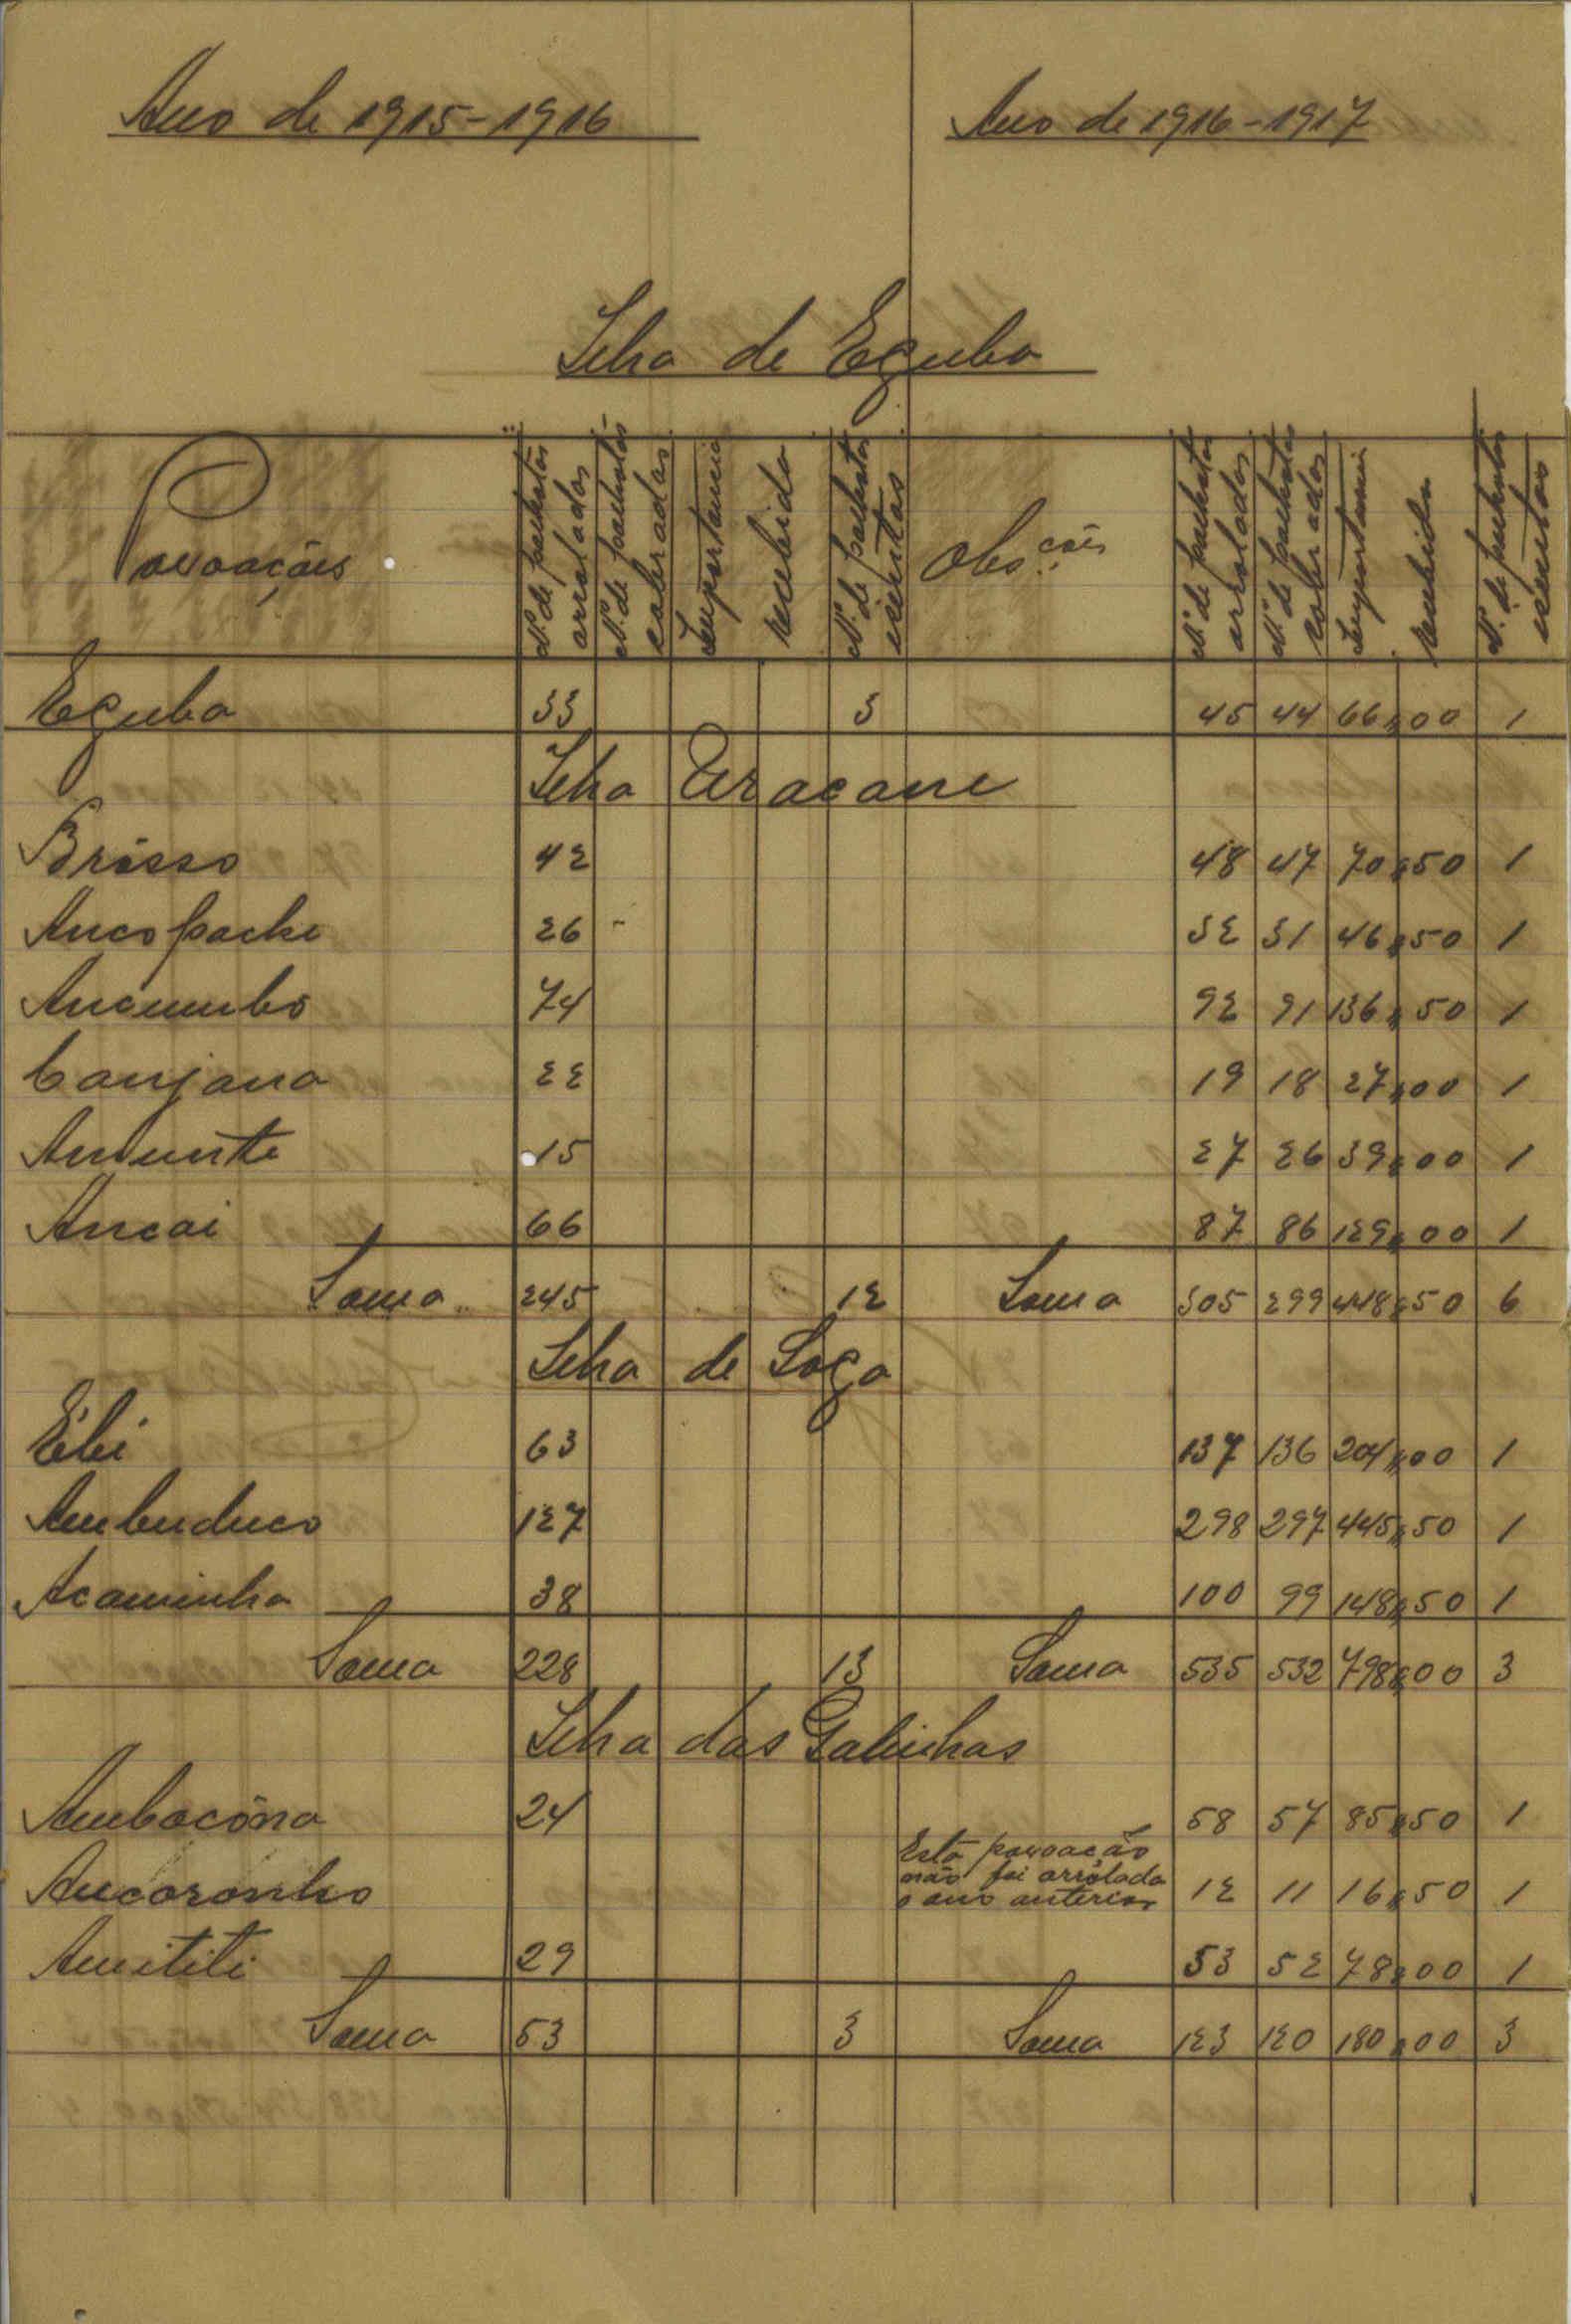 Ano de 1915-1916 Ano de 1916-1917
Ilha de Eguba
Povoações Nº de palhotas arroladas Nº de palhotas cobradas Importancia recebida Nº de palhotas isentas Obs.ções Nº de palhotas arroladas Nº de palhotas cobradas Importancia recebida Nº de palhotas isentas
Eguba 33 3 45 44 66,,00 1
Ilha Uracane
Brósso 42 48 47 70,,50 1
Ancopache 26 - 32 31 46,,50 1
Ancumbo 74 92 91 136,,50 1
Canjana 22 19 18 27,,00 1
15 27 26 39,,00 1
Ancai 66 87 86 129,,00 1
Soma 245 12 Soma 305 299 448,,50 6
Ilha de Soga
Ébi 63 137 136 204,,00 1
Ambuduco 127 298 297 445,,50 1
Acaminha 38 100 99 148,,50 1
Soma 228 13 Soma 535 532 798,,00 3
Ilha das Galinhas
Ambacôna 24 58 57 85,,50 1
Esta povoação
não foi arrolada
o ano anterior
12 11 16,,50 1
Amititi 29 53 52 78,,00 1
Soma 53 3 Soma 123 120 180,,00 3